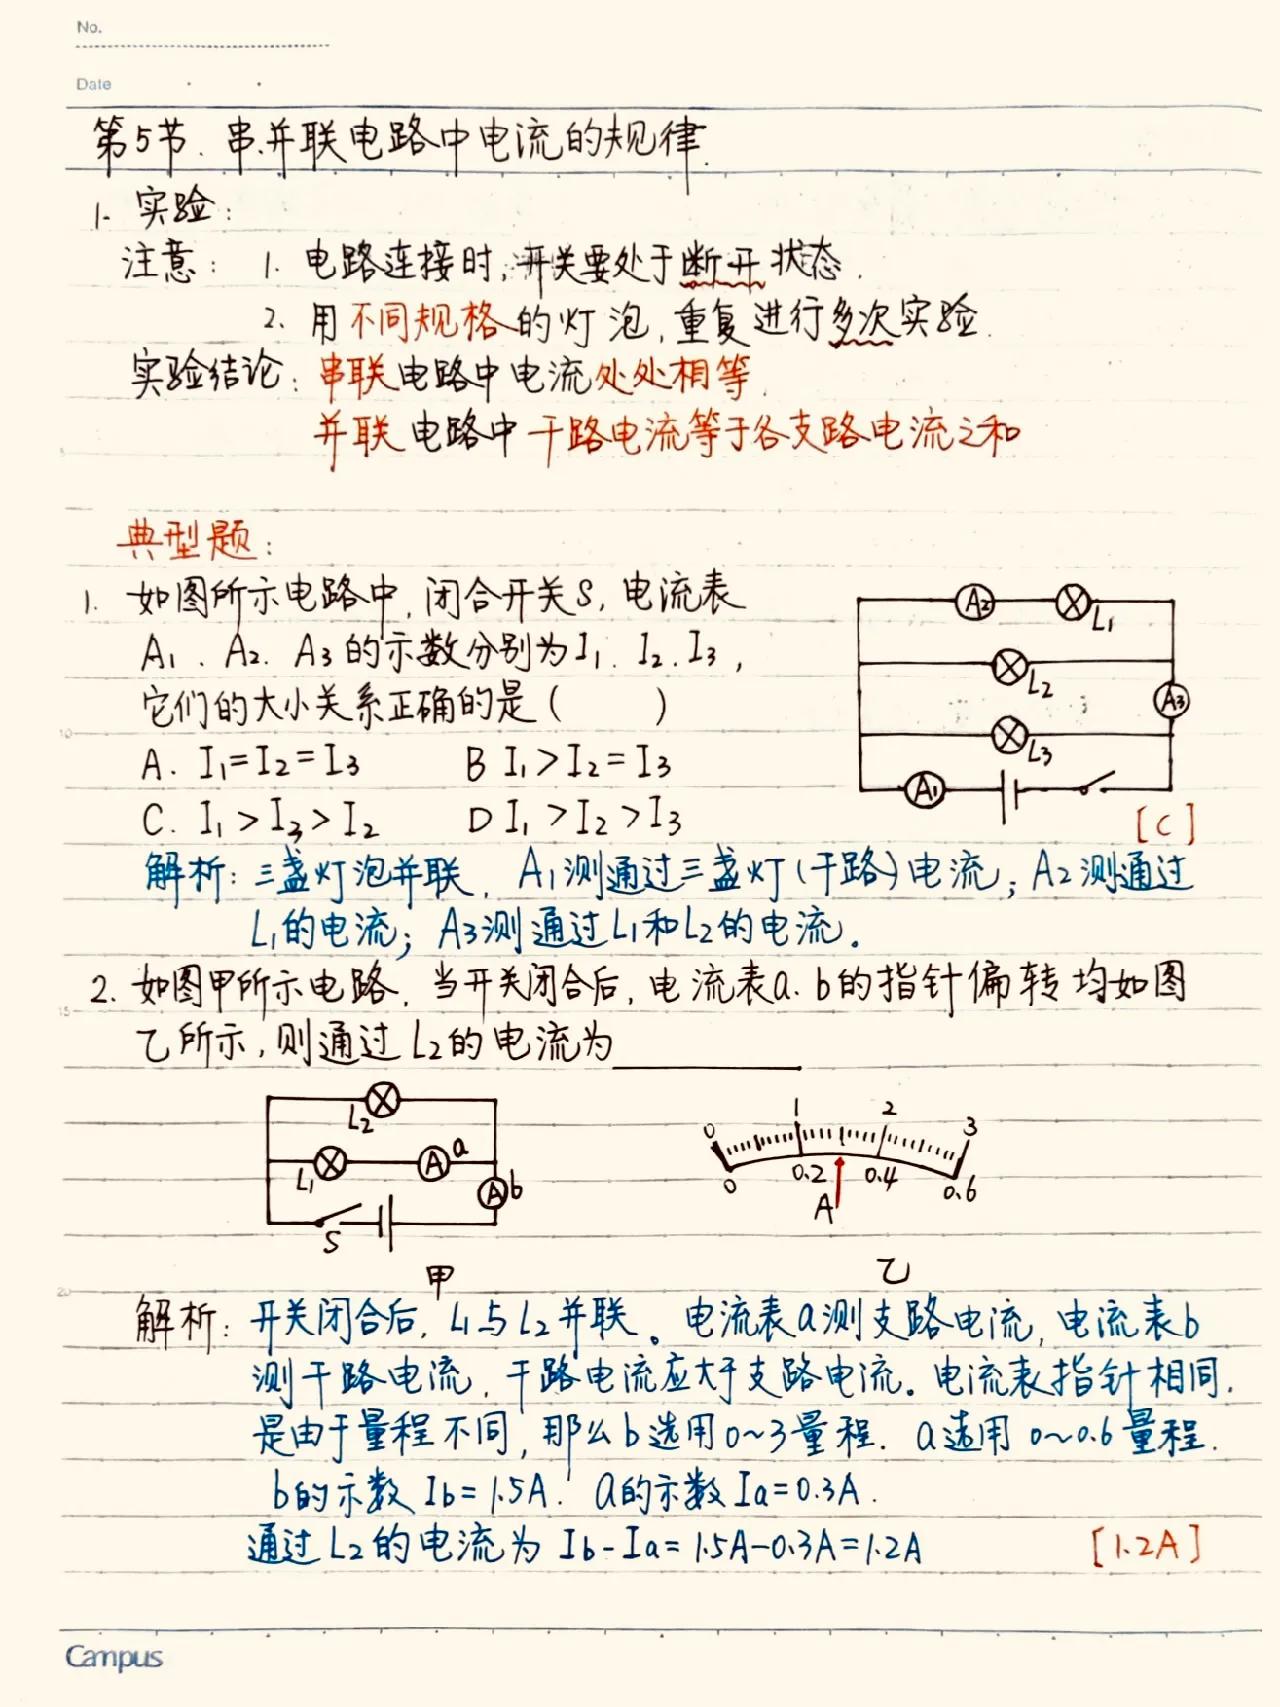 No.
Date
第5节. 串.并联电路中电流的规律.
1. 实验:
注意: 1. 电路连接时,开关要处于断开状态.
2. 用不同规格的灯泡,重复进行多次实验.
实验结论: 串联电路中电流处处相等.
并联电路中干路电流等于各支路电流之和
典型题:
1. 如图所示电路中,闭合开关S,电流表
A₁、A₂、A₃的示数分别为I₁、I₂、I₃,
它们的大小关系正确的是( )
A. I₁=I₂=I₃ B I₁>I₂=I₃
C. I₁>I₃>I₂ D I₁>I₂>I₃
A₂ L₁
L₂
A₃
L₃
A₁
[C]
解析: 三盏灯泡并联, A₁测通过三盏灯(干路)电流; A₂测通过
L₁的电流; A₃测通过L₁和L₂的电流。
2. 如图甲所示电路,当开关闭合后,电流表a.b的指针偏转均如图
乙所示,则通过L₂的电流为
L₂
L₁ A a
A b
S
甲
0 1 2 3
0 0.2 0.4 0.6
A
乙
解析: 开关闭合后, L₁与L₂并联。电流表a测支路电流,电流表b
测干路电流,干路电流应大于支路电流。电流表指针相同,
是由于量程不同,那么b选用0~3量程. a选用0~0.6量程.
b的示数Ib=1.5A. a的示数Ia=0.3A.
通过L₂的电流为 Ib-Ia=1.5A-0.3A=1.2A [1.2A]
5
10
15
20
Campus